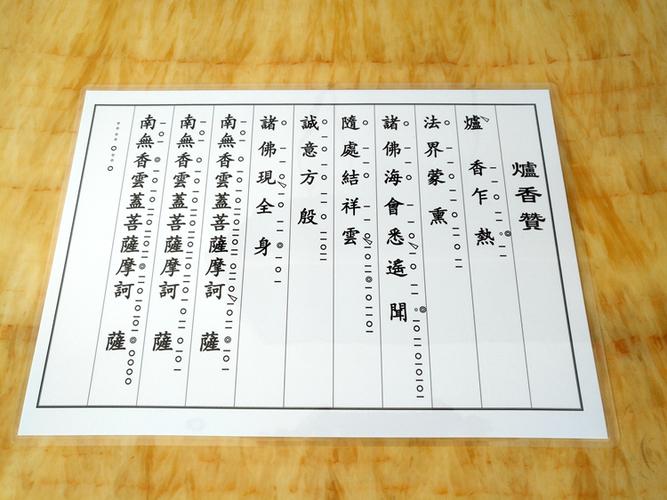 爐香贊
爐香乍熱
法界蒙熏
諸佛海會悉遙聞
隨處結祥雲
誠意方殷
諸佛現全身
南無香雲蓋菩薩摩訶薩
南無香雲蓋菩薩摩訶薩
南無香雲蓋菩薩摩訶薩